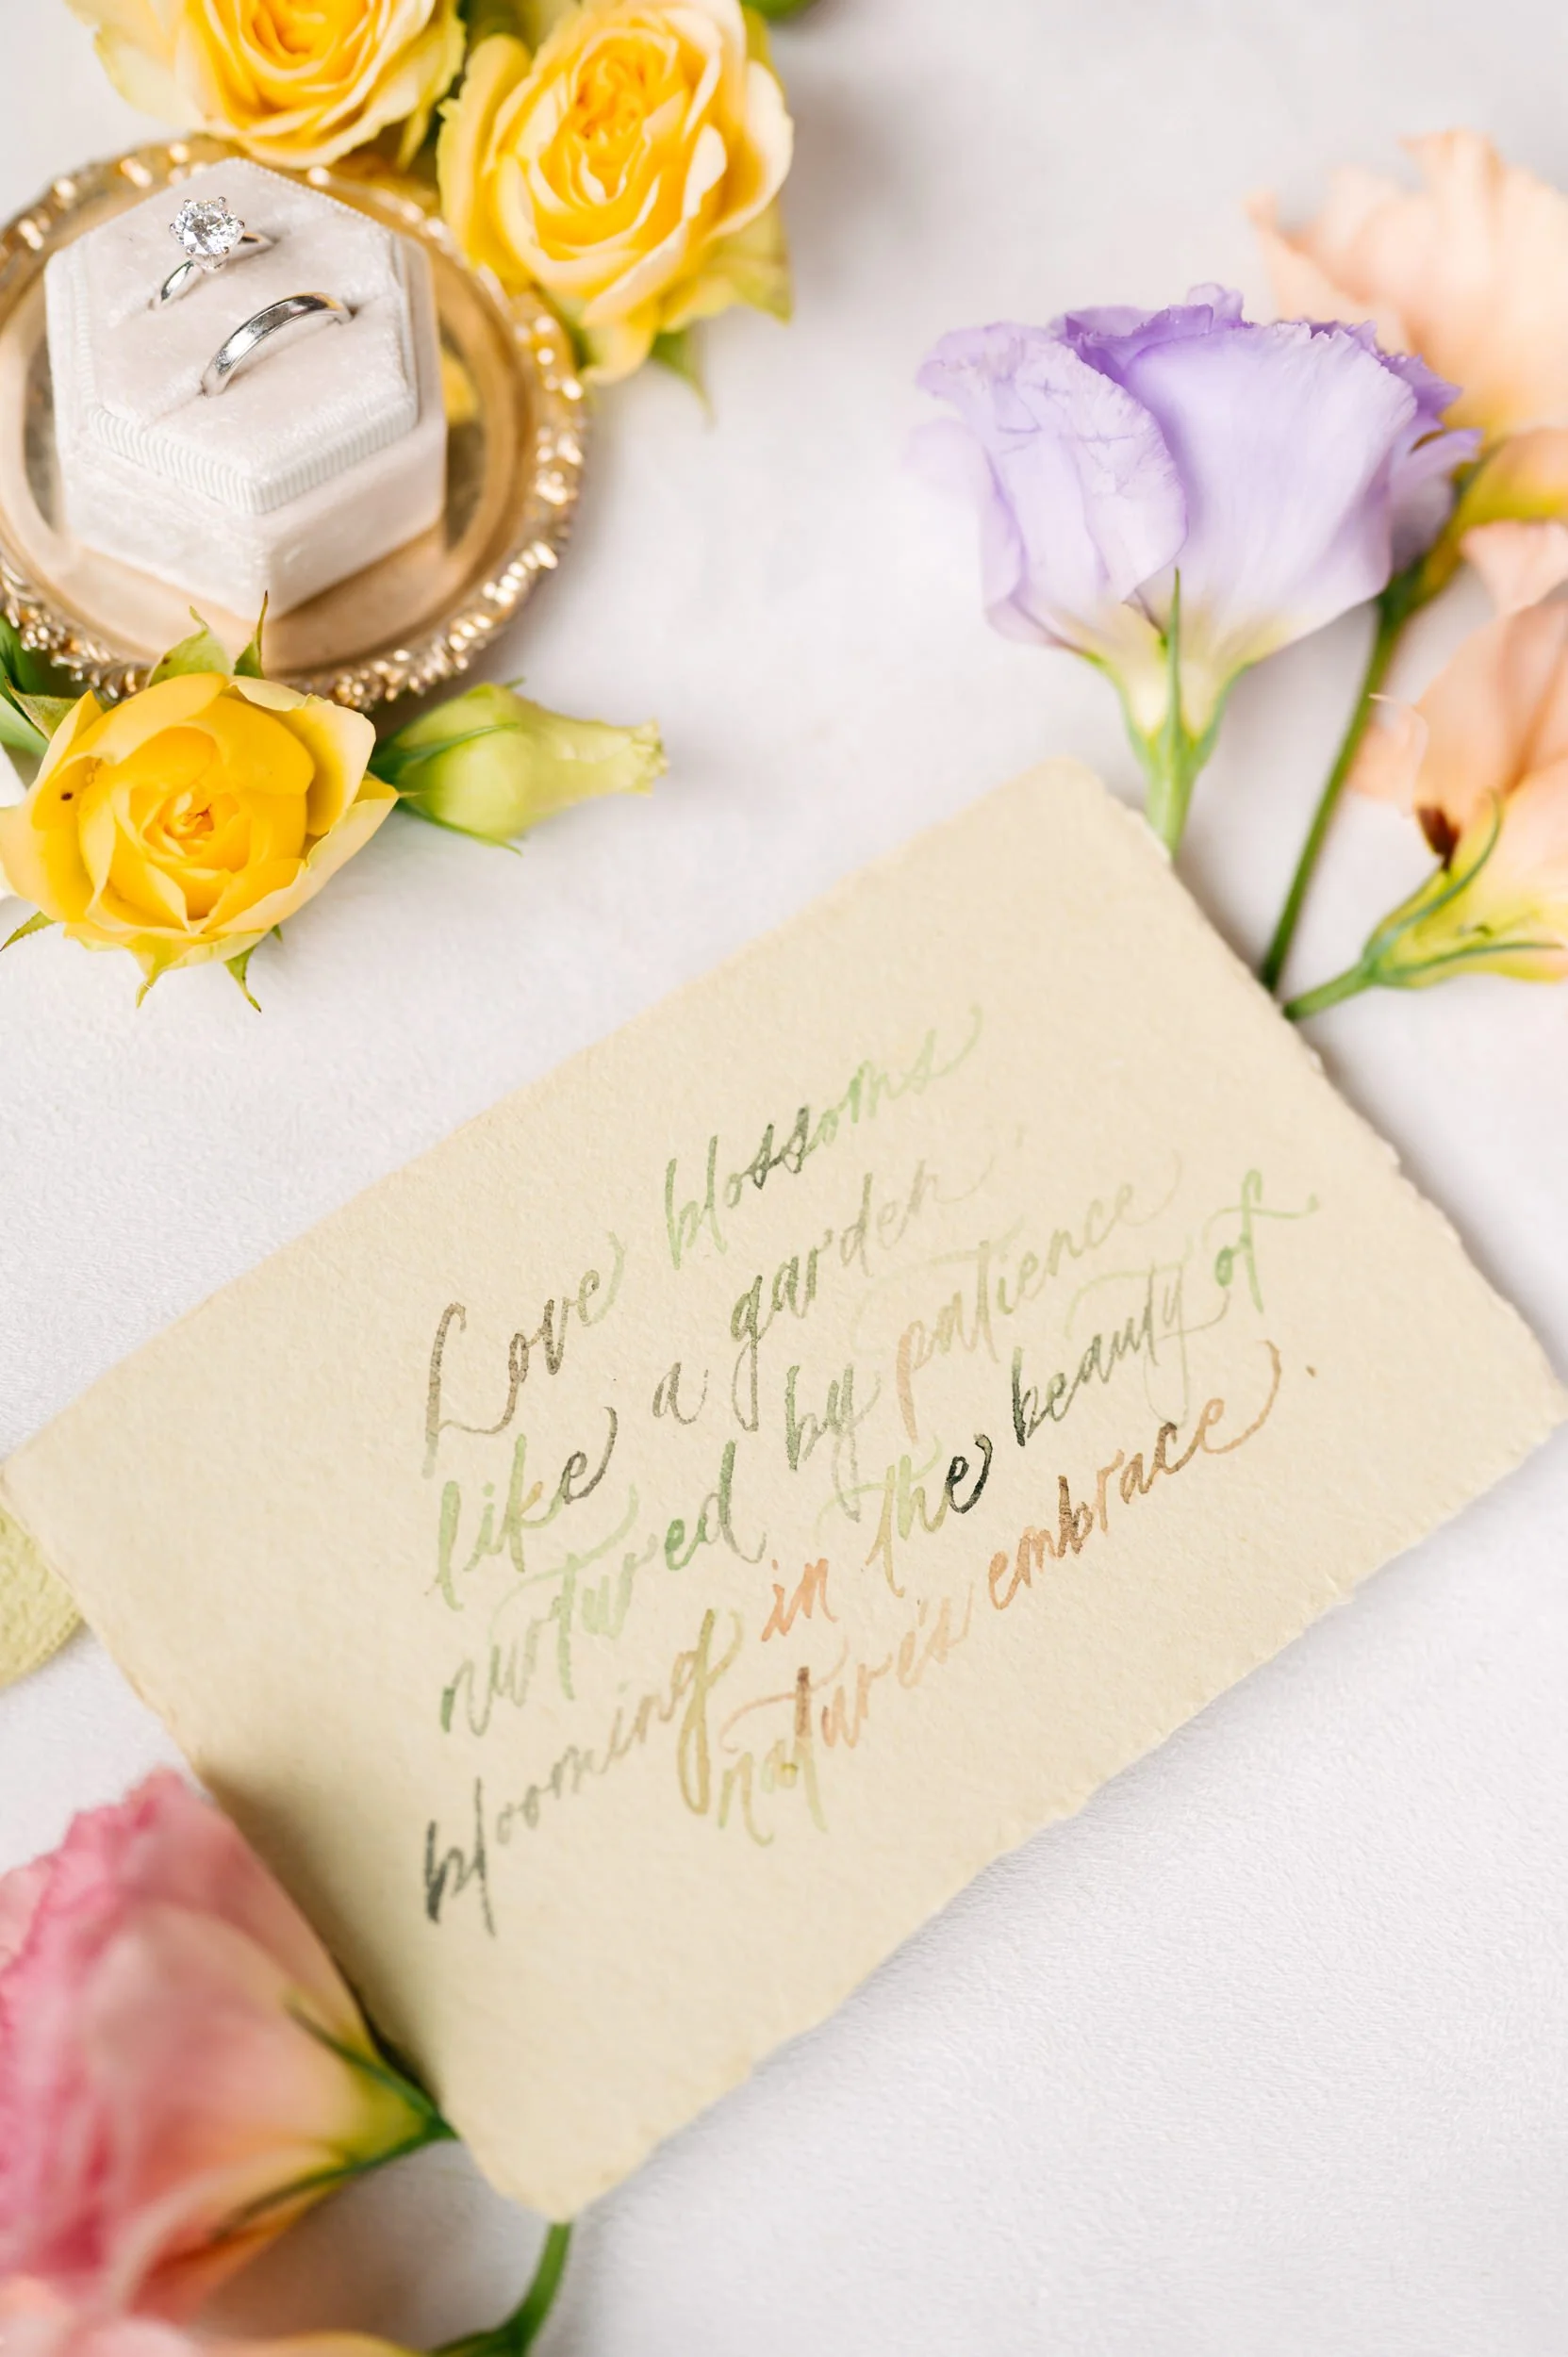 Love blossoms
like a garden
nurtured by patience
blooming in the beauty of
nature's embrace.